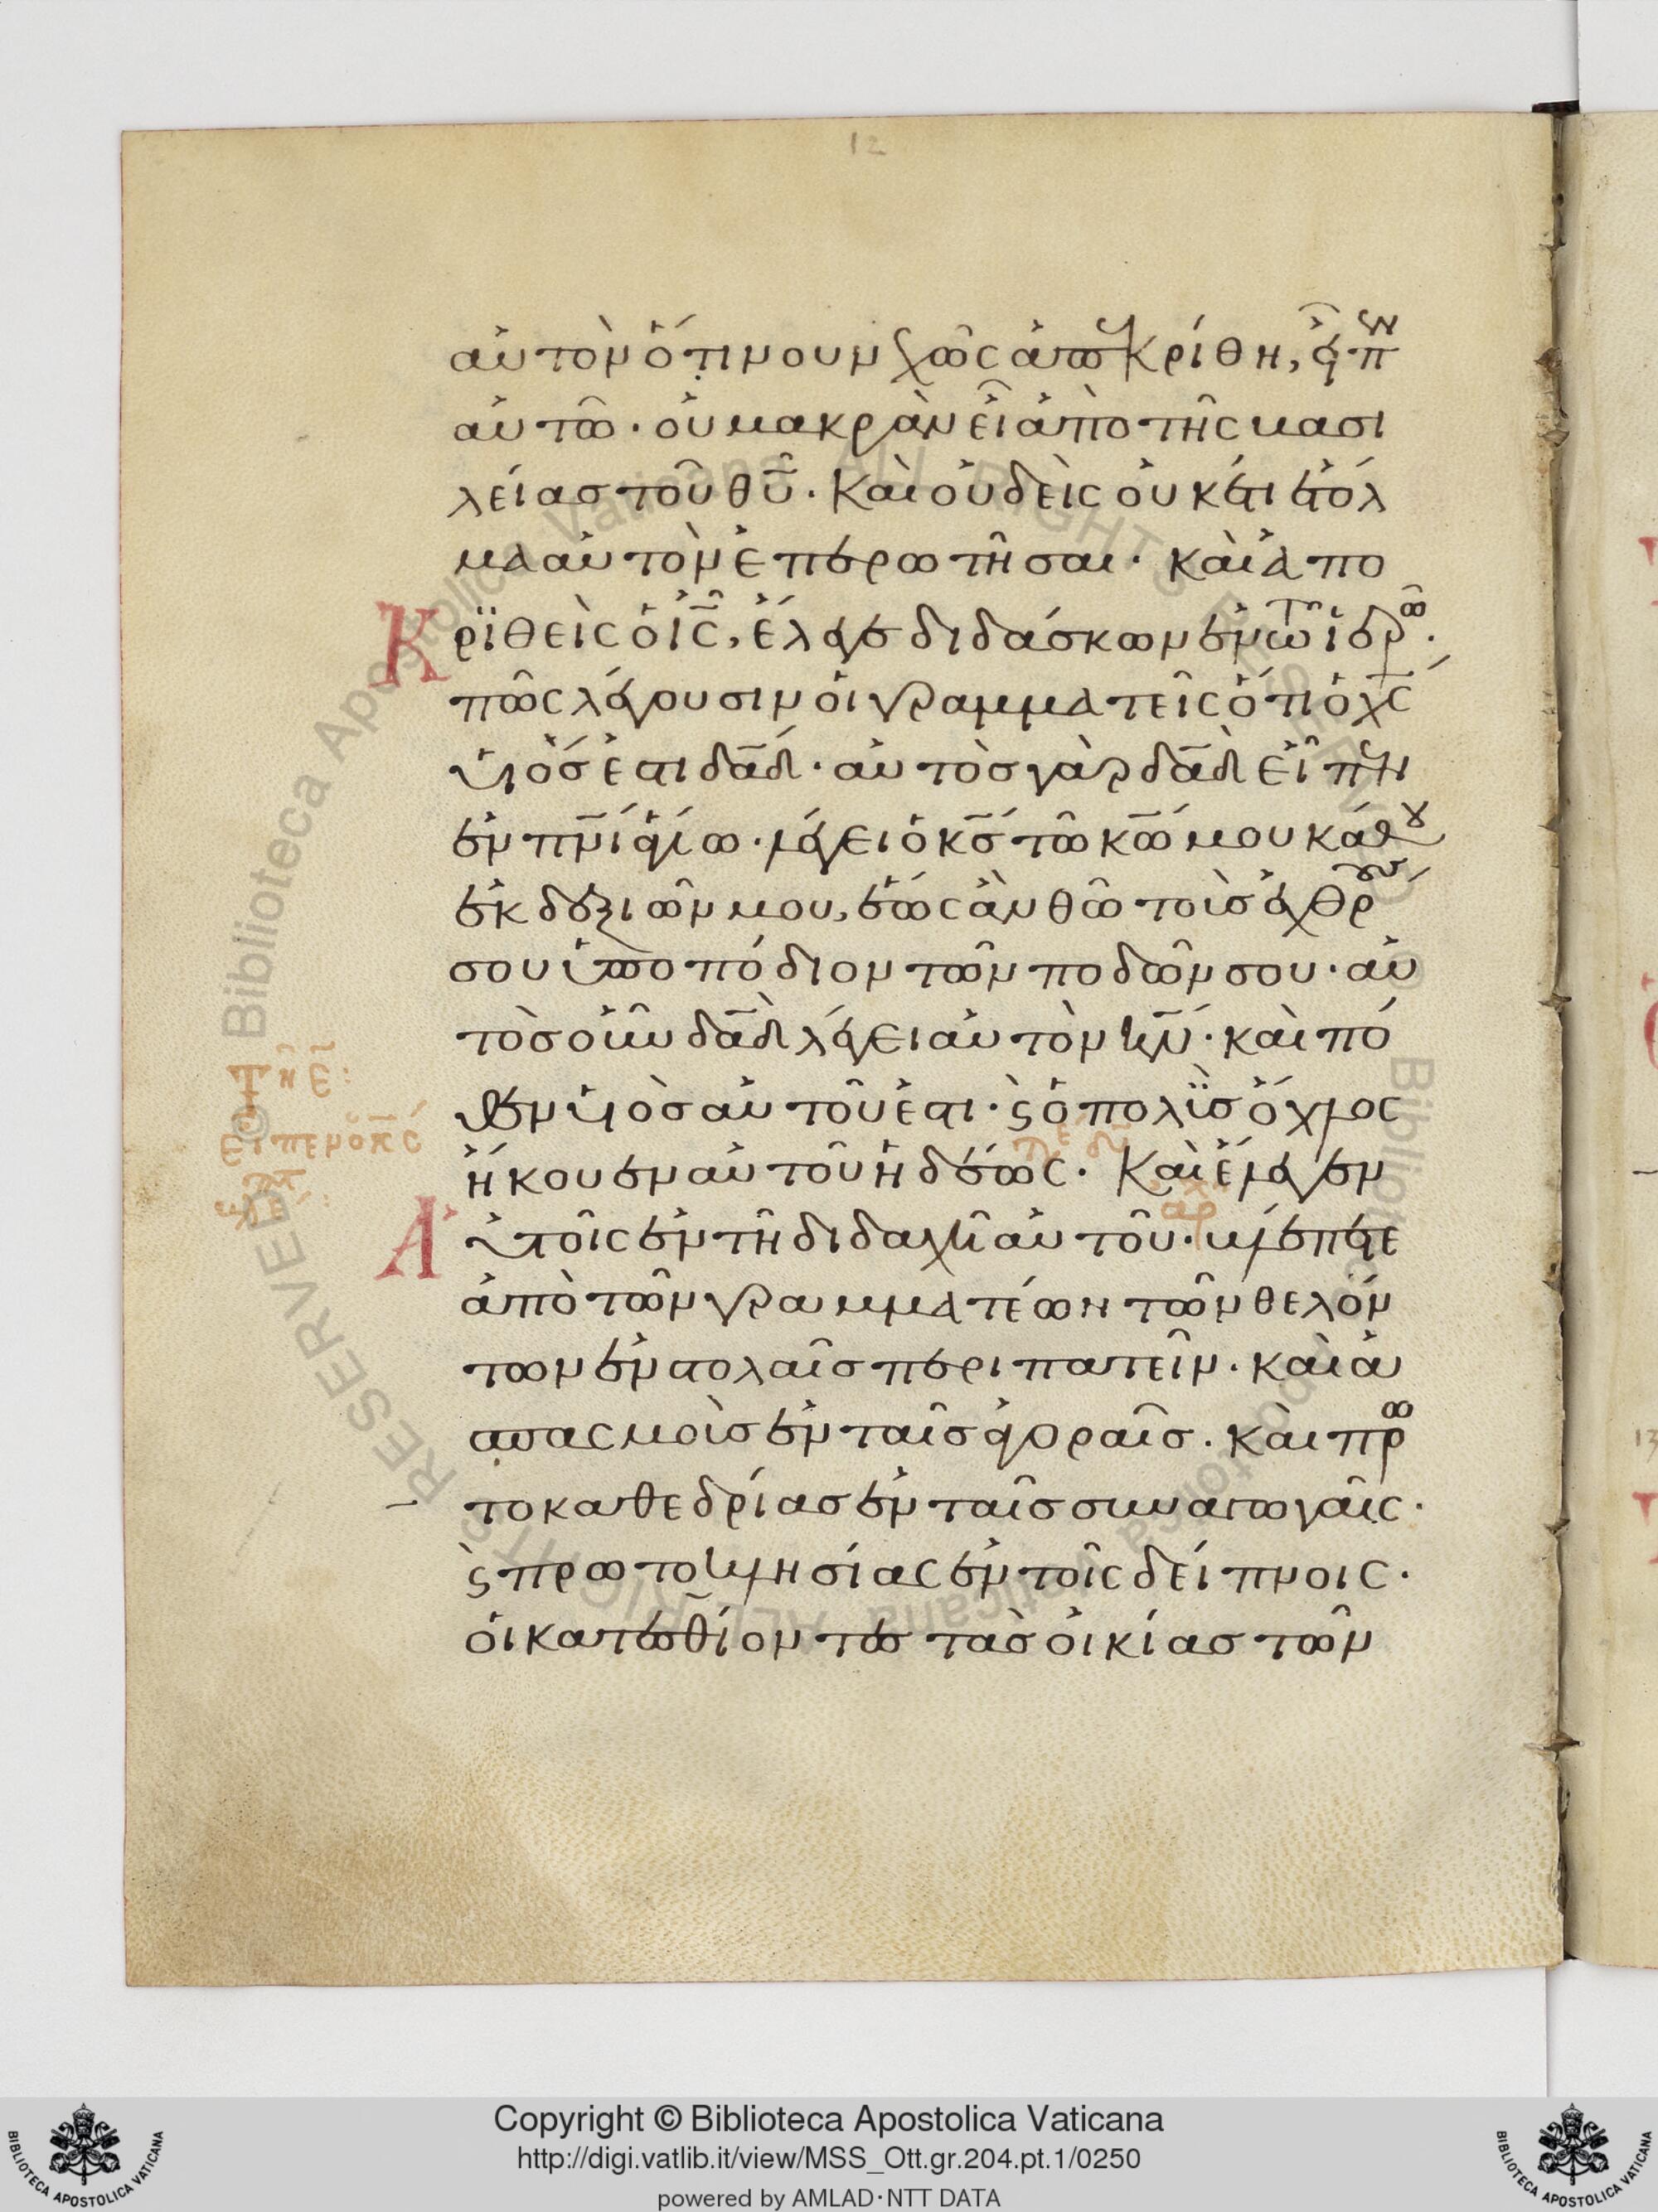 12
αὐτὸν ὅτι νουνχῶς ἀπεκρίθη, εἶπεν
αὐτῶ· οὐ μακρὰν εἶ ἀπὸ τῆς βασι
λείας τοῦ θυ̅· Καὶ οὐδεὶς οὐκέτι ἐτόλ
μα αὐτὸν ἐπερωτῆσαι· καὶ ἀπο
Κρϊθεὶς ὁ ις̅, ἔλεγε διδάσκων ἐν τῶ ἱερῶ·
πῶς λέγουσιν οἱ γραμματεῖς ὅτι ὁ χς̅
υἱός ἐστι δα̅δ· αὐτὸς γὰρ δα̅δ εἶπεν
ἐν πν̅ι ἁγίω· λέγει ὁ κς̅ τῶ κω̅ μου κάθου
ἐκ δεξιῶν μου, ἕως ἂν θῶ τοὺς ἐχθρούς
σου ὑποπόδιον τῶν ποδῶν σου· αὐ
τὸς οὖν δα̅δ λέγει αὐτὸν κν̅· καὶ πό
θεν υἱὸς αὐτοῦ ἐστι· ϛ ὁ πολὺς ὄχλος
ἤκουεν αὐτοῦ ἡδέως· Καὶ ἔλεγεν
Αὐτοῖς ἐν τῆ διδαχῆ αὐτοῦ· βλέπετε
ἀπὸ τῶν γραμματέων τῶν θελόν
των ἐν στολαῖς περιπατεῖν· καὶ ἀ
σπασμοὺς ἐν ταῖς ἀγοραῖς· καὶ πρω
τοκαθεδρίας ἐν ταῖς συναγωγαῖς·
ϛ πρωτοκλησίας ἐν τοῖς δείπνοις·
οἱ κατεσθίοντες τὰς οἰκίας τῶν
Copyright © Biblioteca Apostolica Vaticana
http://digi.vatlib.it/view/MSS_Ott.gr.204.pt.1/0250
powered by AMLAD·NTT DATA
BIBLIOTECA APOSTOLICA VATICANA
BIBLIOTECA APOSTOLICA VATICANA